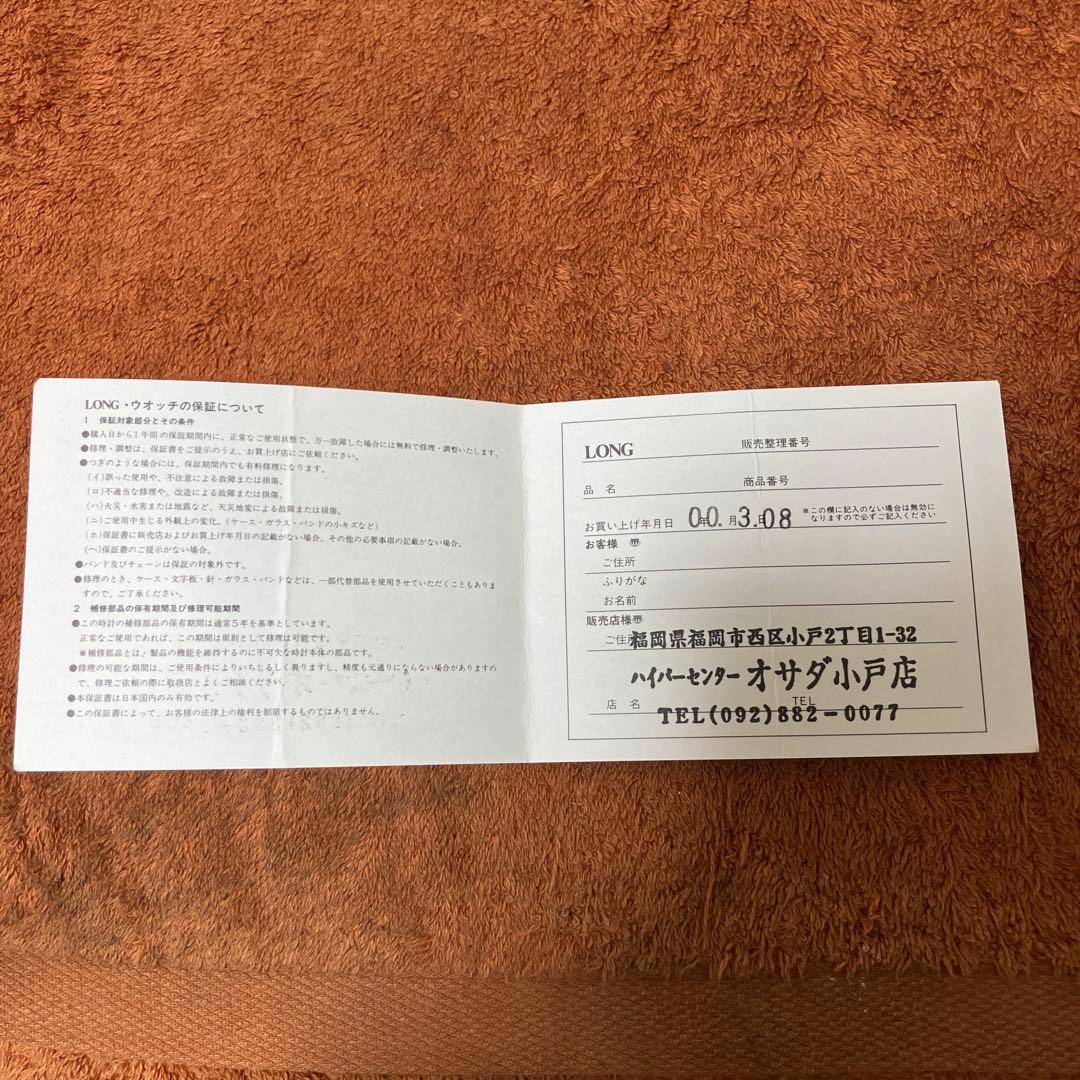 LONG・ウオッチの保証について
1 保証対象部分とその条件
●購入日から1年間の保証期間内に、正常なご使用状態で、万一故障した場合には無料で修理・調整いたします。
●修理・調整は、保証書をご提示のうえ、お買上げ店にご依頼ください。
●つぎのような場合には、保証期間内でも有料修理になります。
(イ)誤った使用や、不注意による故障または損傷。
(ロ)不適当な修理や、改造による故障または損傷。
(ハ)火災・水害または地震など、天災地変による故障または損傷。
(ニ)ご使用中生じる外観上の変化。(ケース・ガラス・バンドの小キズなど)
(ホ)保証書に販売店およびお買上げ年月日の記載がない場合、その他の必要事項の記載がない場合。
(ヘ)保証書のご提示がない場合。
●バンド及びチェーンは保証の対象外です。
●修理のとき、ケース・文字板・針・ガラス・バンドなどは、一部代替部品を使用させていただくこともありま
すので、ご了承ください。
2 補修部品の保有期間及び修理可能期間
●この時計の補修部品の保有期間は通常5年を基準としています。
正常なご使用であれば、この期間は原則として修理は可能です。
※補修部品とは、製品の機能を維持するのに不可欠な時計本体の部品です。
●修理の可能な期間は、ご使用条件によりいちじるしく異りますし、精度も元通りにならない場合がありますの
で、修理ご依頼の際に取扱店とよくご相談ください。
●本保証書は日本国内のみ有効です。
●この保証書によって、お客様の法律上の権利を制限するものではありません。
LONG 販売整理番号
品名 商品番号
お買い上げ年月日 00年.月3.日08 ※この欄に記入のない場合は無効に
なりますので必ずご記入ください
お客様 〠
ご住所
ふりがな
お名前
販売店様〠
ご住所 福岡県福岡市西区小戸2丁目1-32
ハイパーセンター オサダ小戸店
店名 TEL
TEL(092)882-0077